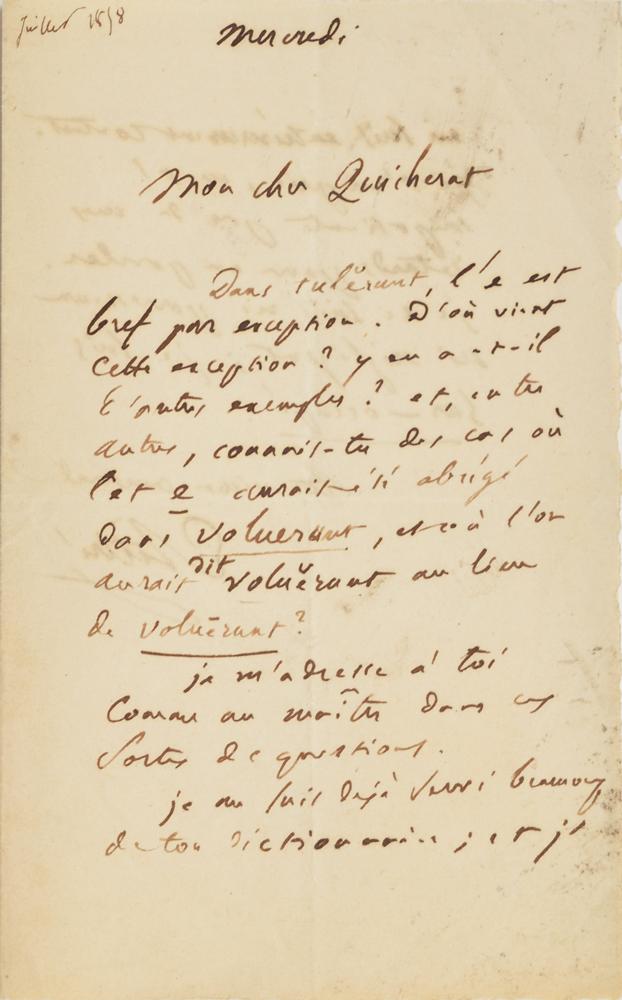 Juillet 1858
Mercredi
Mon cher Quicherat
Dans tulĕrunt, l'e est
bref par exception. D'où vient
cette exception ? y en a-t-il
d'autres exemples ? et, entre
autres, connais-tu des cas où
cet e aurait été abrégé
dans voluerunt, et où l'on
aurait dit voluĕrunt au lieu
de voluērunt ?
je m'adresse à toi
Comme au maître dans ces
sortes de questions.
je me suis déjà servi beaucoup
de ton dictionnaire ; et j'